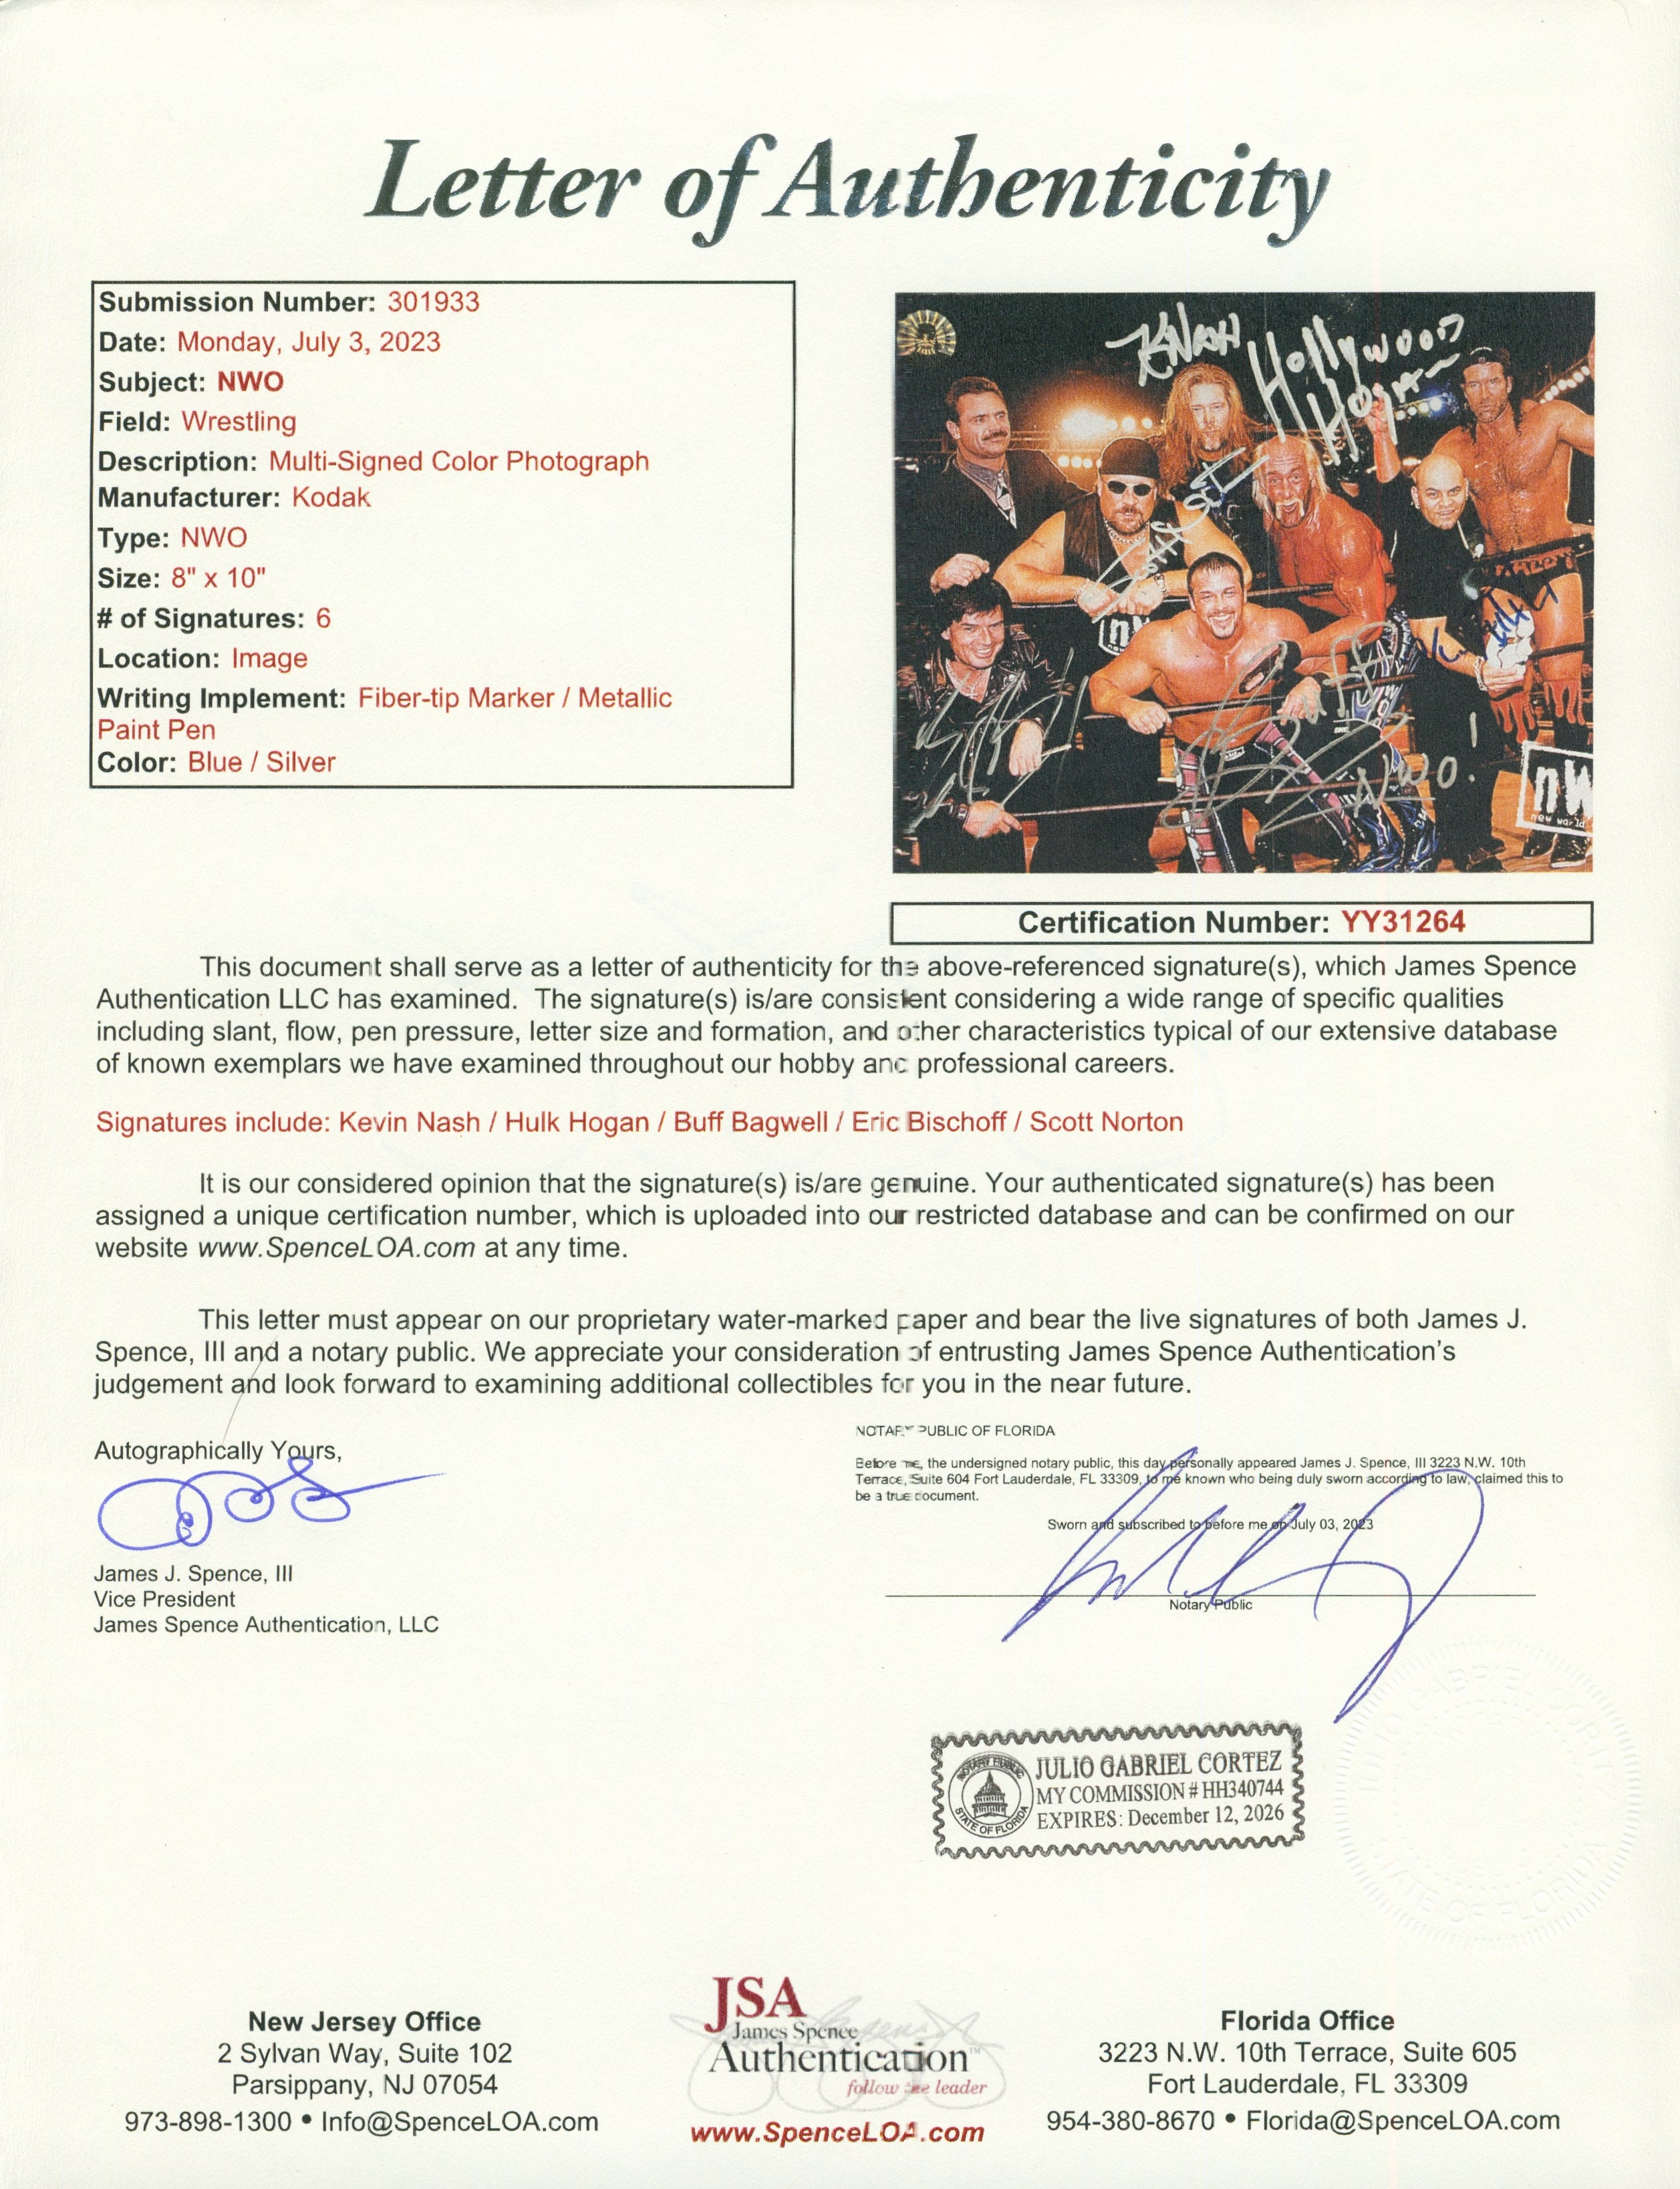 Letter of Authenticity
Submission Number: 301933
Date: Monday, July 3, 2023
Subject: NWO
Field: Wrestling
Description: Multi-Signed Color Photograph
Manufacturer: Kodak
Type: NWO
Size: 8" x 10"
# of Signatures: 6
Location: Image
Writing Implement: Fiber-tip Marker / Metallic
Paint Pen
Color: Blue / Silver
KNash
Hollywood
Hogan
Buff
NWO!
nW
new world
Certification Number: YY31264
This document shall serve as a letter of authenticity for the above-referenced signature(s), which James Spence
Authentication LLC has examined. The signature(s) is/are consistent considering a wide range of specific qualities
including slant, flow, pen pressure, letter size and formation, and other characteristics typical of our extensive database
of known exemplars we have examined throughout our hobby and professional careers.
Signatures include: Kevin Nash / Hulk Hogan / Buff Bagwell / Eric Bischoff / Scott Norton
It is our considered opinion that the signature(s) is/are genuine. Your authenticated signature(s) has been
assigned a unique certification number, which is uploaded into our restricted database and can be confirmed on our
website www.SpenceLOA.com at any time.
This letter must appear on our proprietary water-marked paper and bear the live signatures of both James J.
Spence, III and a notary public. We appreciate your consideration of entrusting James Spence Authentication's
judgement and look forward to examining additional collectibles for you in the near future.
Autographically Yours,
James J. Spence, III
Vice President
James Spence Authentication, LLC
NOTARY PUBLIC OF FLORIDA
Before me, the undersigned notary public, this day personally appeared James J. Spence, III 3223 N.W. 10th
Terrace, Suite 604 Fort Lauderdale, FL 33309, to me known who being duly sworn according to law, claimed this to
be a true document.
Sworn and subscribed to before me on July 03, 2023
Notary Public
NOTARY PUBLIC
STATE OF FLORIDA
JULIO GABRIEL CORTEZ
MY COMMISSION # HH340744
EXPIRES: December 12, 2026
STATE OF FLORIDA
New Jersey Office
2 Sylvan Way, Suite 102
Parsippany, NJ 07054
973-898-1300 • Info@SpenceLOA.com
JSA
James Spence
Authentication™
follow the leader
www.SpenceLOA.com
Florida Office
3223 N.W. 10th Terrace, Suite 605
Fort Lauderdale, FL 33309
954-380-8670 • Florida@SpenceLOA.com